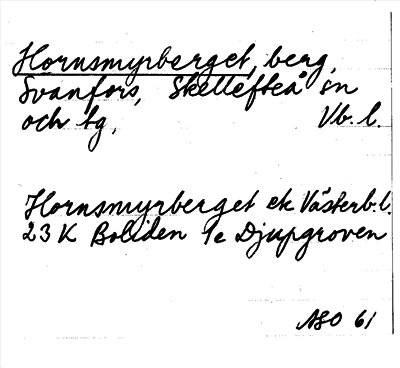 Hornsmyrberget, berg,
Svanfors, Skellefteå sn
och tg, Vb. l.
Hornsmyrberget ek Västerb. l.
23 K Boliden 1e Djupgroven
ASO 61